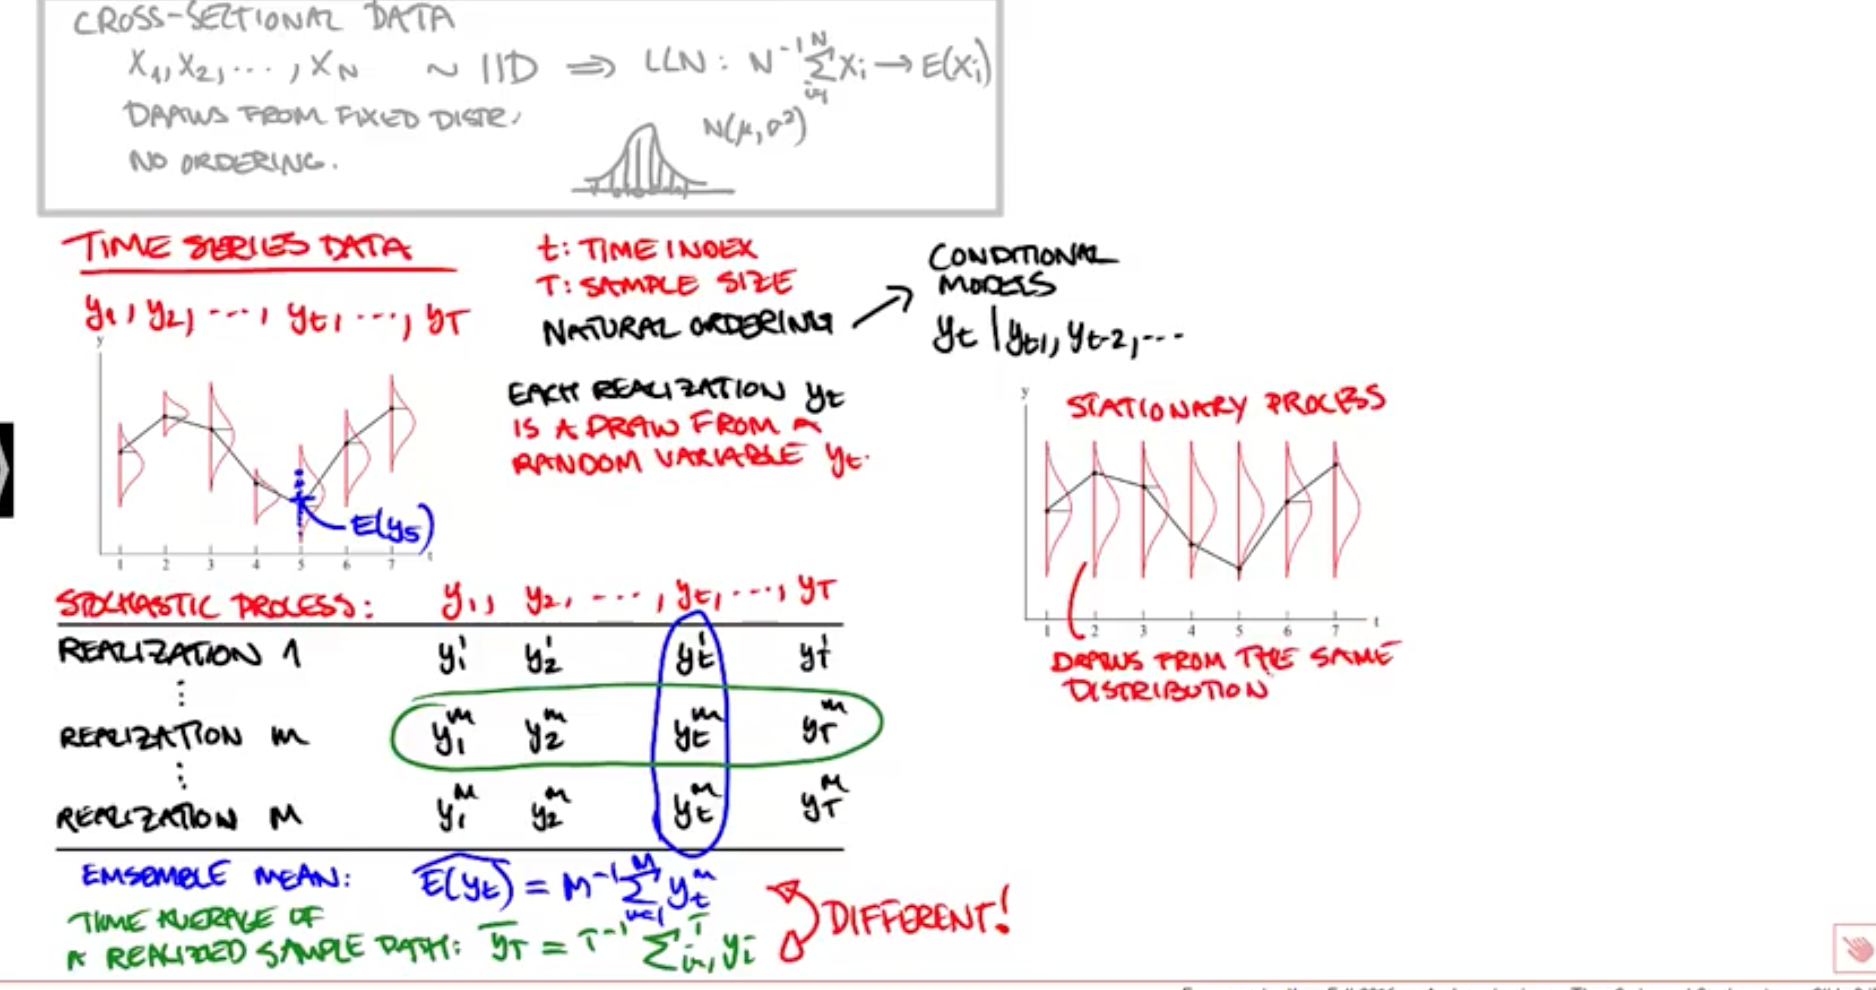 CROSS-SECTIONAL DATA
X₁, X₂, ..., X_N ~ IID ⇒ LLN: N⁻¹ Σ_{i=1}^{N} X_i → E(X_i)
DRAWS FROM FIXED DISTR.
N(μ, σ²)
NO ORDERING.
TIME SERIES DATA
y₁, y₂, ..., y_t, ..., y_T
t: TIME INDEX
T: SAMPLE SIZE
NATURAL ORDERING →
CONDITIONAL
MODELS
y_t | y_{t-1}, y_{t-2}, ...
EACH REALIZATION y_t
IS A DRAW FROM A
RANDOM VARIABLE y_t.
y
E(y₅)
1 2 3 4 5 6 7 t
STATIONARY PROCESS
y
1 2 3 4 5 6 7 t
DRAWS FROM THE SAME
DISTRIBUTION
STOCHASTIC PROCESS: y₁, y₂, ..., y_t, ..., y_T
REALIZATION 1 y₁¹ y₂¹ y_t¹ y_T¹
⋮
REALIZATION m y₁ᵐ y₂ᵐ y_tᵐ y_Tᵐ
⋮
REALIZATION M y₁ᴹ y₂ᴹ y_tᴹ y_Tᴹ
ENSEMBLE MEAN: Ê(y_t) = M⁻¹ Σ_{m=1}^{M} y_tᵐ
TIME AVERAGE OF
A REALIZED SAMPLE PATH: ȳ_T = T⁻¹ Σ_{i=1}^{T} y_i
DIFFERENT!